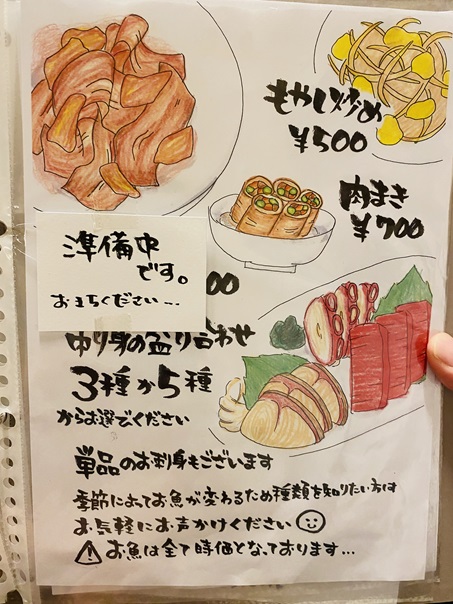 もやし炒め
¥500
肉まき
¥700
準備中
です。
おまちください…
00
の盛り合わせ
3種か5種
からお選びください
単品のお刺身もございます
季節によってお魚が変わるため種類を知りたい方は
お気軽にお声かけください
お魚は全て時価となっております…